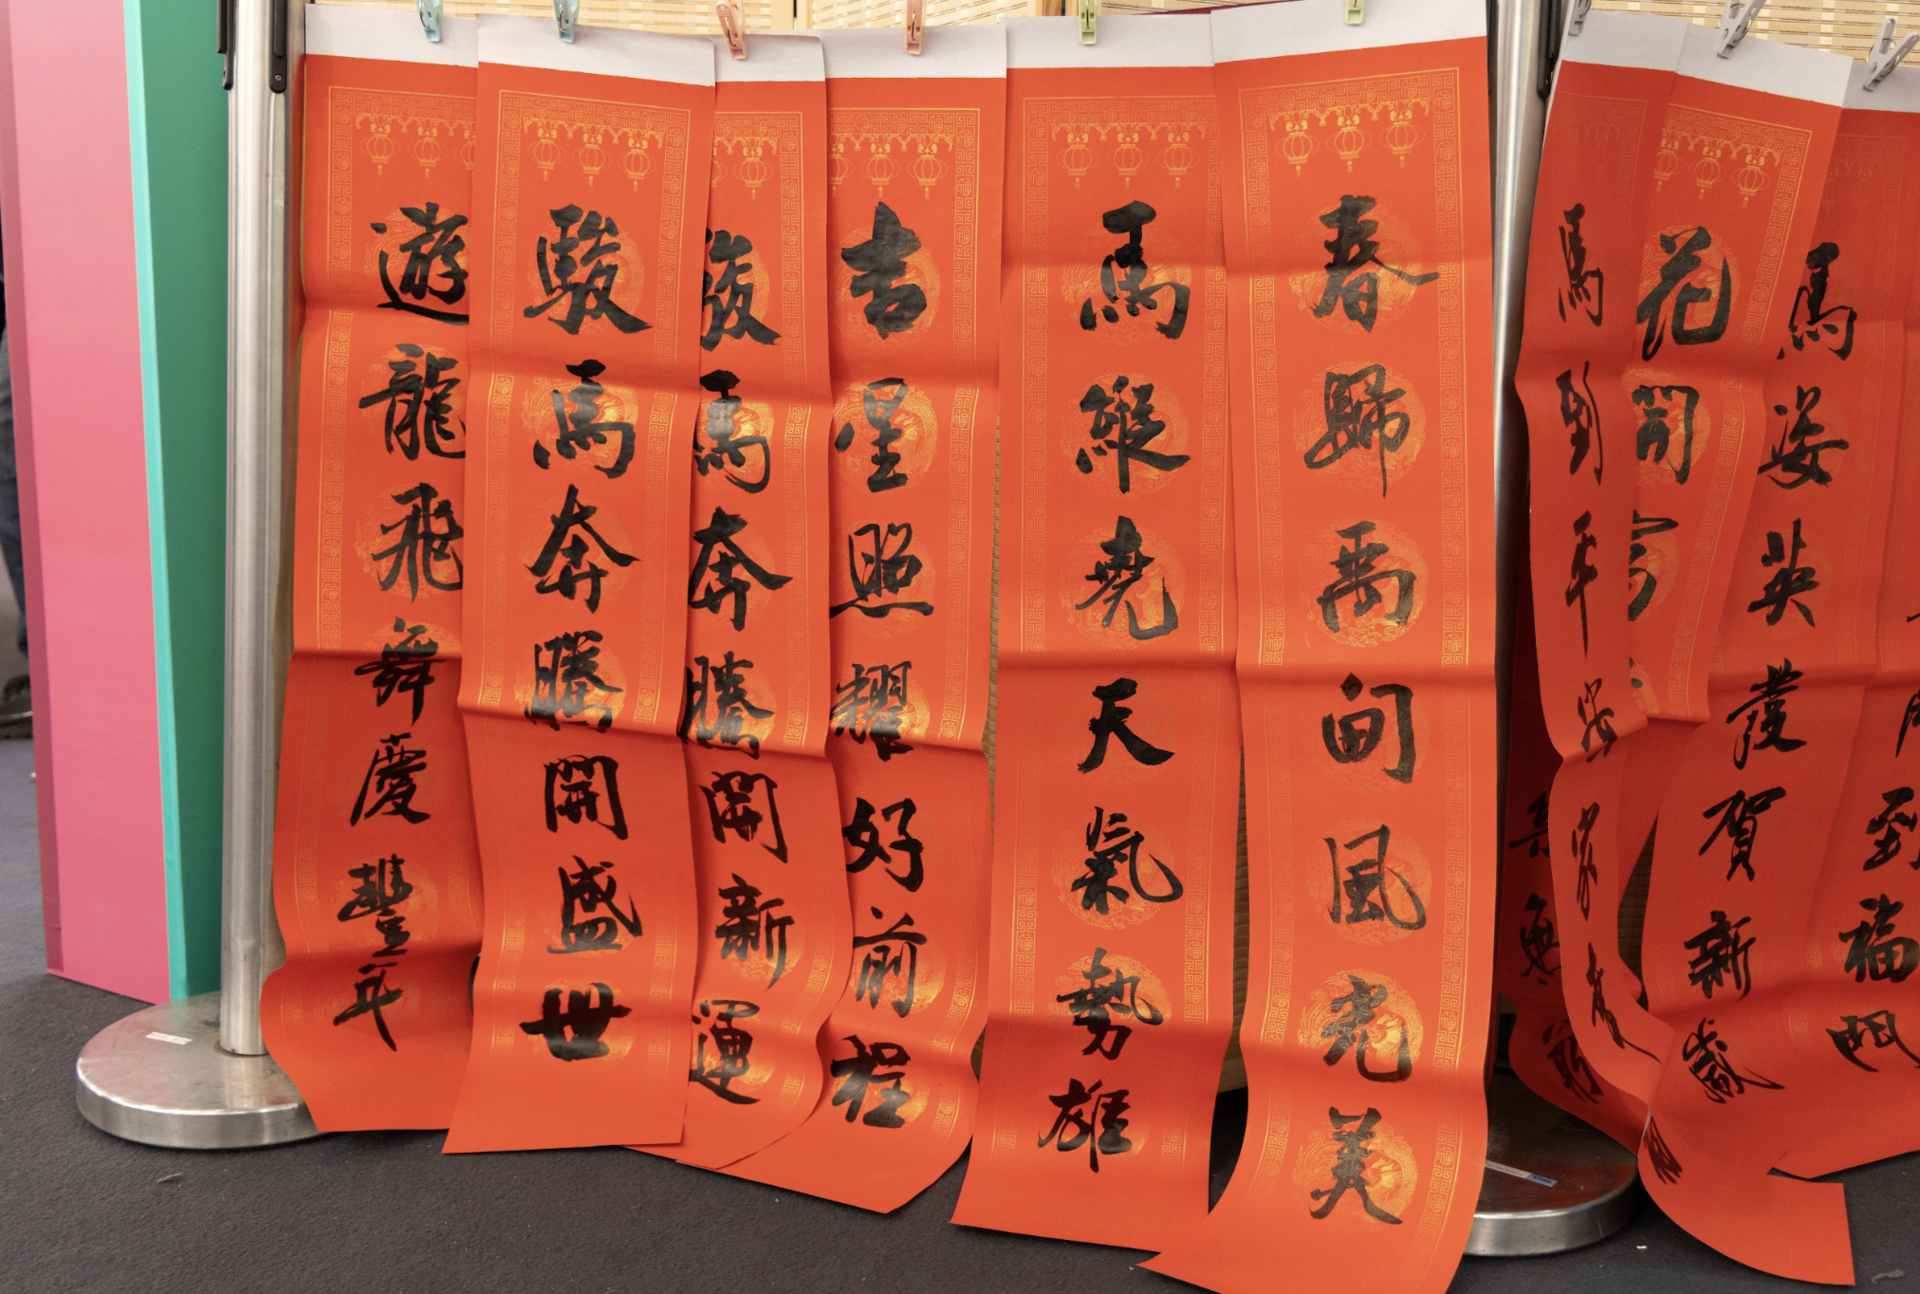 到福門
馬姿英發賀新歲
花開
馬到
春歸禹甸風光美
馬縱堯天氣勢雄
吉星照耀好前程
駿馬奔騰開新運
駿馬奔騰開盛世
遊龍飛舞慶豐年